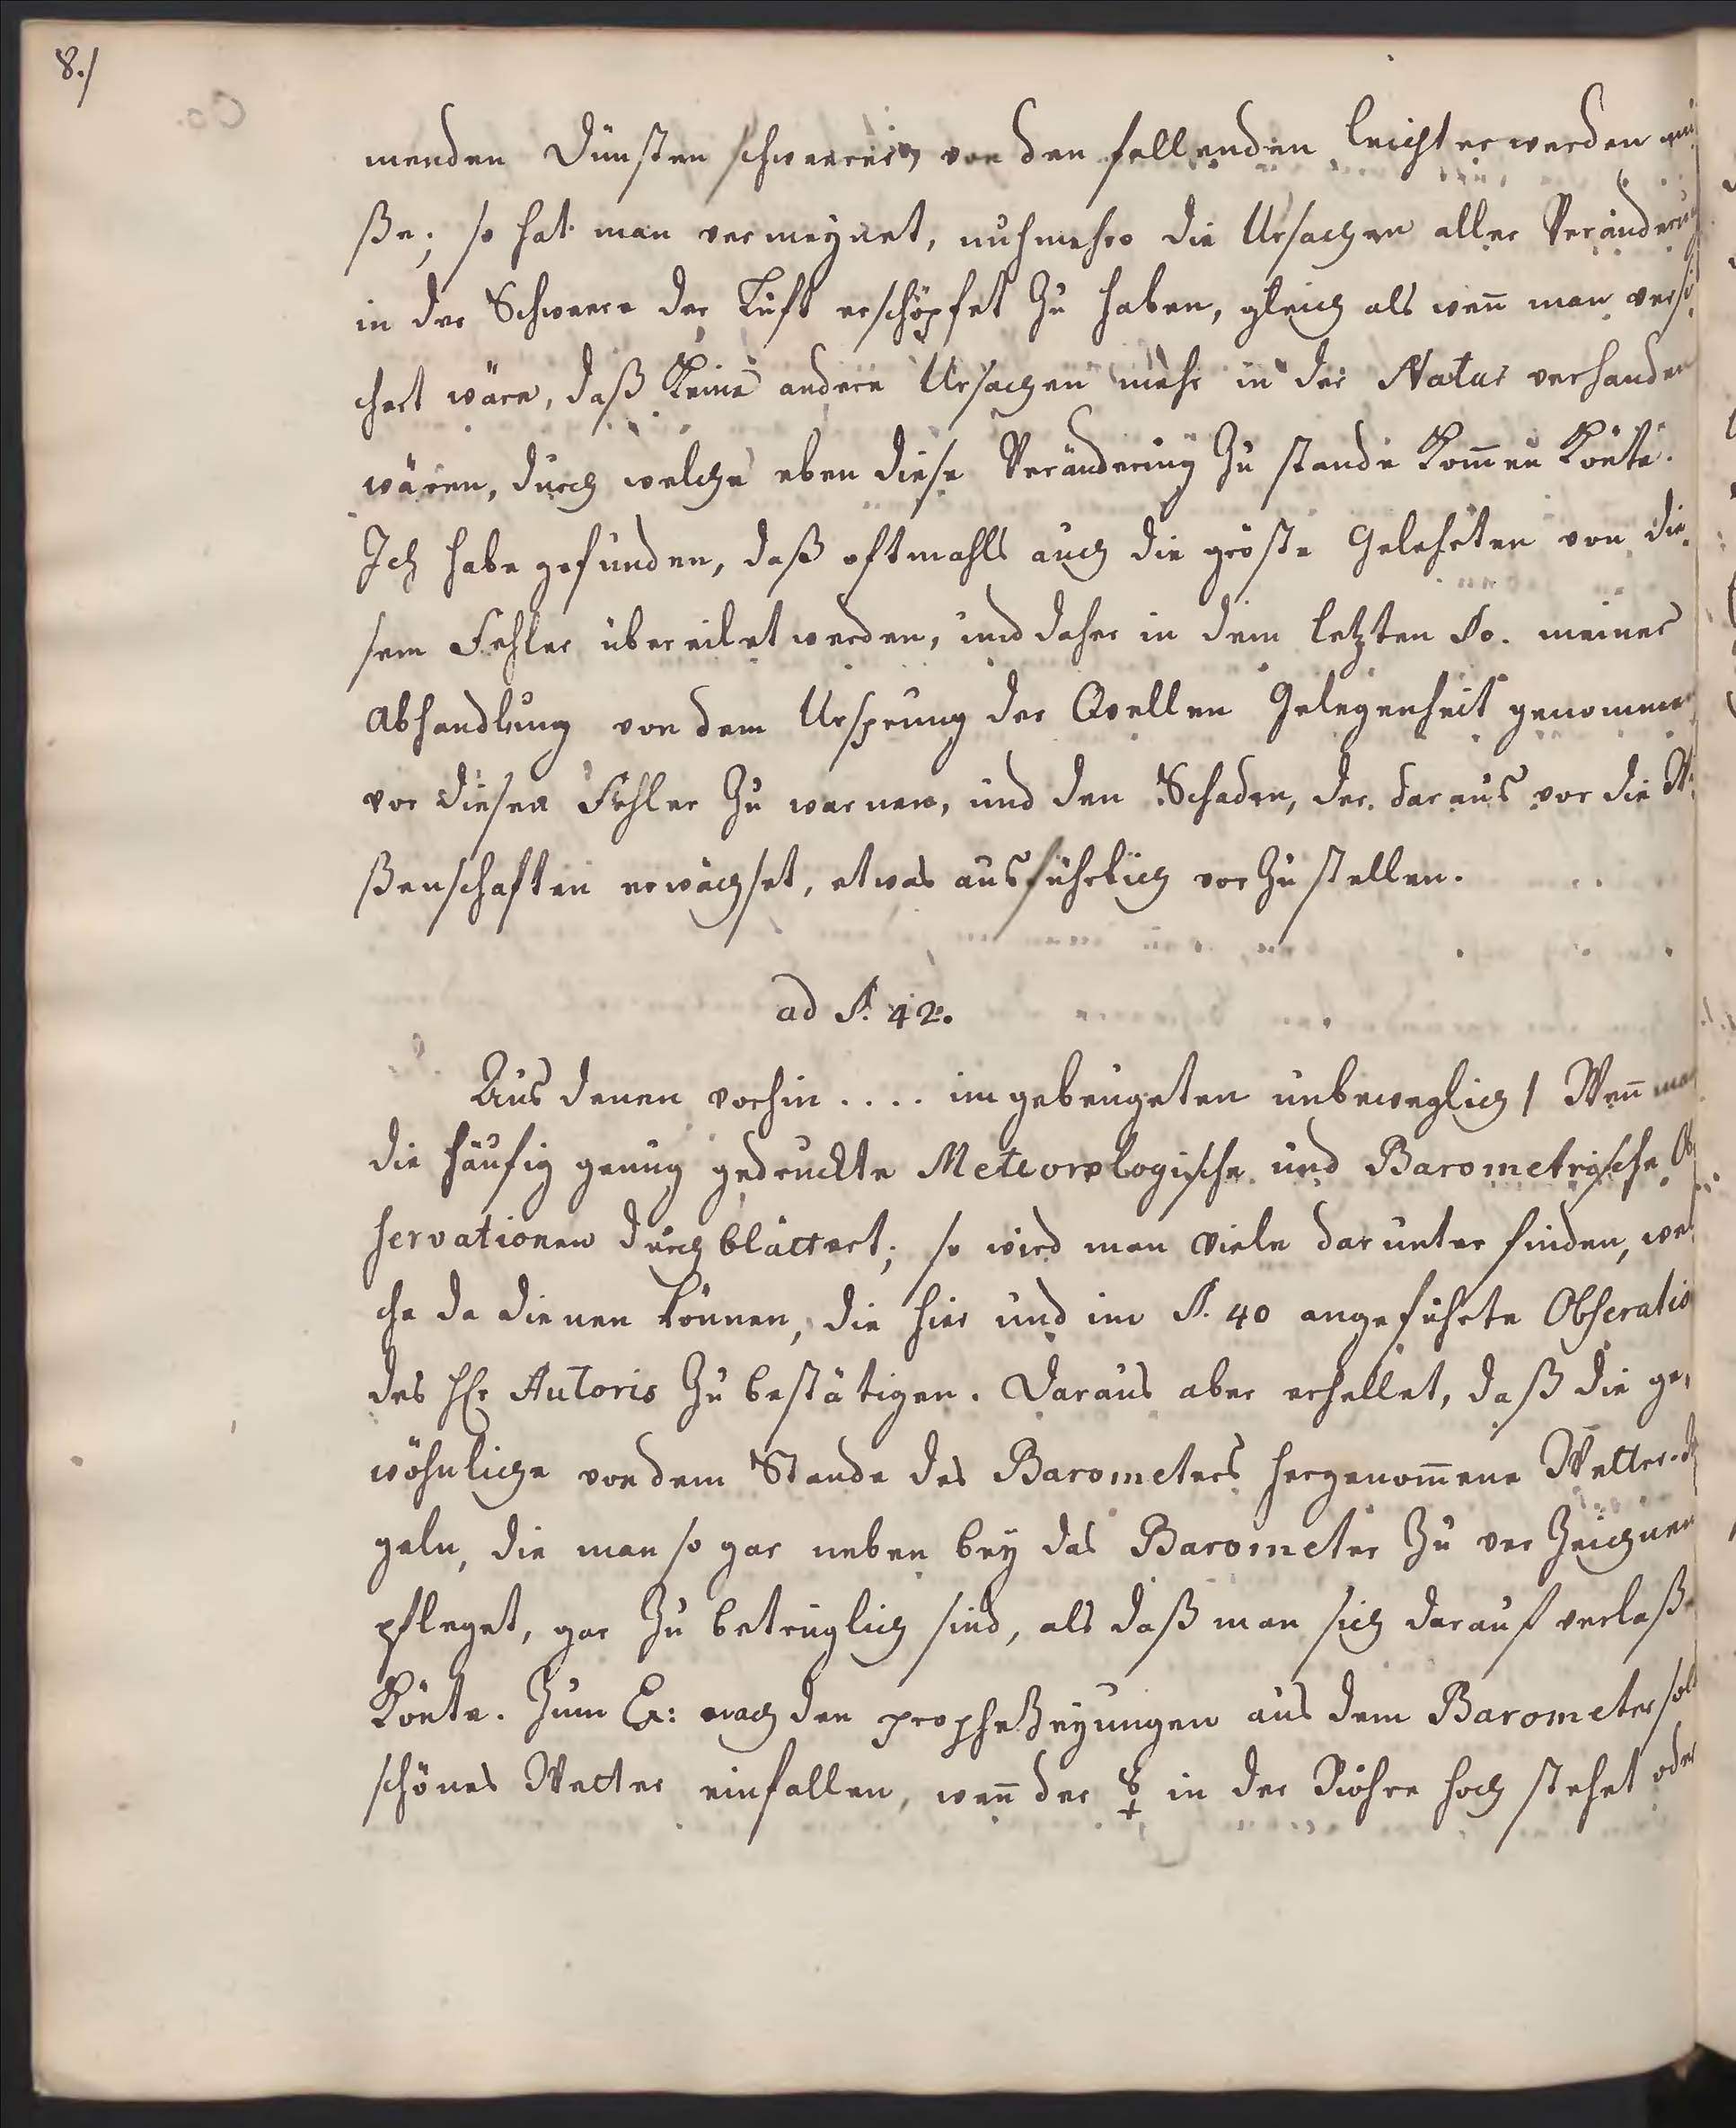 8./
menden Dünsten schwerer, von den fallenden leichter werden mü
ße; so hat man vermeynet, nuhmehro die Ursachen aller Veränderung
in der Schweere der Luft erschöpfet zu haben, gleich als weñ man versi
chert wäre, daß keine andere Ursachen mehr in der Natur verhanden
wären, durch welche eben diese Veränderung zu stande kom̄en kön̄te.
Ich habe gefunden, daß oftmahls auch die gröste Gelehrten von die
sem Fehler übereilet werden, und daher in dem letzten §o. meiner
Abhandlung von dem Ursprung der Qvellen Gelegenheit genommen
vor diesen Fehler zu warnen, und den Schaden, der daraus vor die Wi
ßenschaften erwächset, etwas ausführlich vorzustellen.
ad §. 42.
Aus denen vorhin .... im gebeugeten unbeweglich / Weñ man
die häufig genug gedruckte Meteorologische und Barometrische Ob
servationen durchblättert; so wird man viele darunter finden, wel
che da dienen können, die hier und im §. 40 angeführte Obseratio
des H. Autoris zu bestätigen. Daraus aber erhellet, daß die ge,
wöhnliche von dem Stande des Barometers hergenom̄ene Wetter-Re
geln, die man so gar neben bey das Barometer zu verzeichnen
pfleget, gar zu betrüglich sind, als daß man sich darauf verlaße
kön̄te. Zum Ex: nach den propheßeyungen aus dem Barometer soll
schönes Wetter einfallen, weñ der ☿ in der Röhre hoch stehet oder